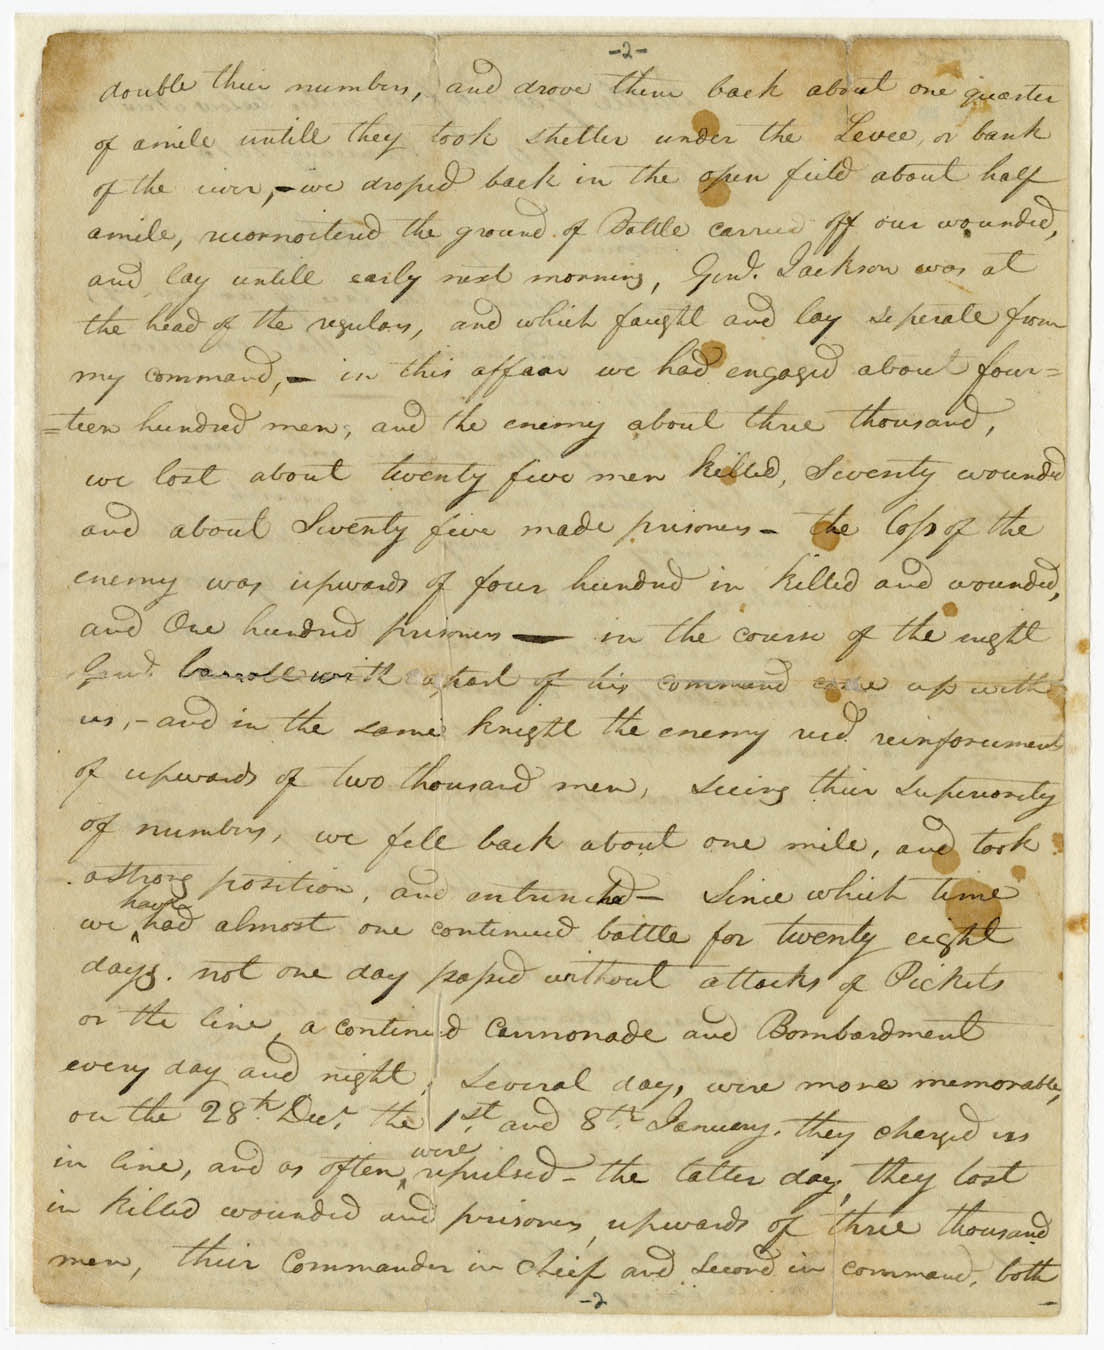 -2-
double their numbers, and drove them back about one quarter
of amile untill they took shelter under the Levee, or bank
of the river, - we droped back in the open field about half
amile, reconnoitered the ground of Battle carried off our wounded,
and lay untill early next morning, Genl. Jackson was at
the head of the regulars, and which faught and lay seperate from
my command, - in this affair we had engaged about four=
=teen hundred men, and the enemy about three thousand,
we lost about twenty five men killed, Seventy wounded
and about Seventy five made prisoners - the loss of the
enemy was upwards of four hundred in killed and wounded,
and One hundred prisoners — in the course of the night
Genl. Carroll with apart of his command came up with
us, - and in the same knight the enemy recd. reinforcement
of upwards of two thousand men, seeing their superiority
of numbers, we fell back about one mile, and took
astrong position, and entrenched - Since which time
have
we ^ had almost one continued battle for twenty eight
days. not one day passed without attacks of Pickets
or the line, a continued Cannonade and Bombardment
every day and night, several days were more memorable,
on the 28th. Decr. the 1st. and 8th. January. they charged us
were
in line, and as often ^ repulsed - the latter day, they lost
in killed wounded and prisoners, upwards of three thousand
men, their Commander in chief and second in command, both
-2
-